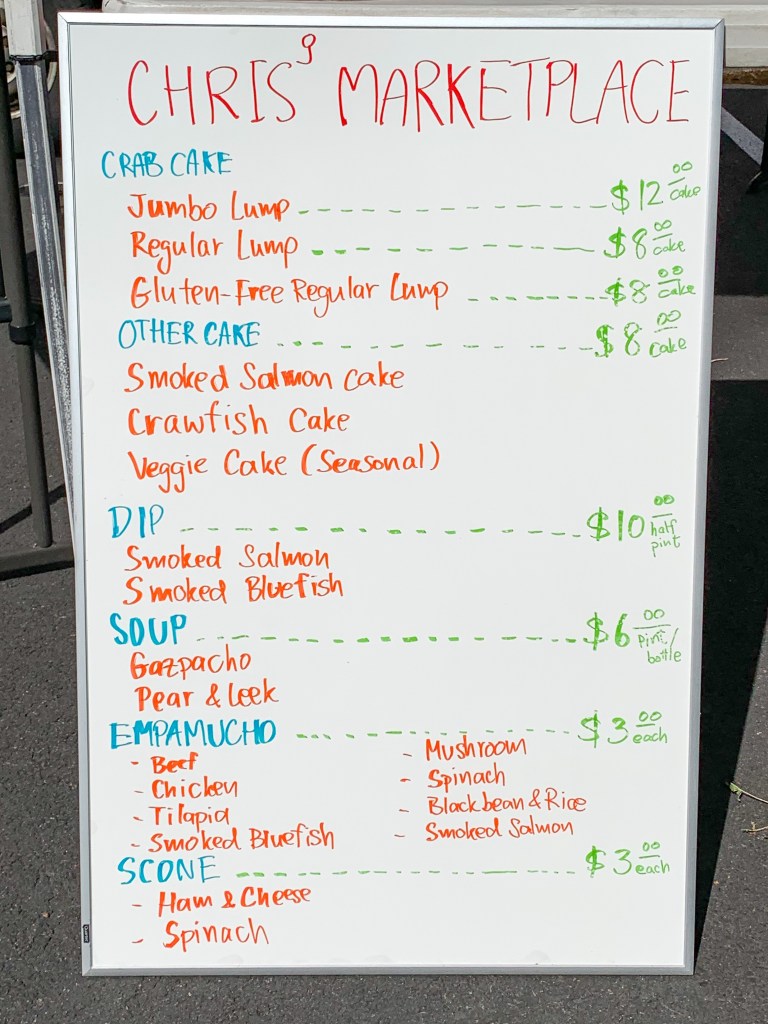 CHRIS' MARKETPLACE
CRAB CAKE
Jumbo Lump - - - - - - - - - - $12.00 cake
Regular Lump - - - - - - - - - $8.00 cake
Gluten-Free Regular Lump - - - - - $8.00 cake
OTHER CAKE - - - - - - - - - - $8.00 cake
Smoked Salmon Cake
Crawfish Cake
Veggie Cake (Seasonal)
DIP - - - - - - - - - - - - - - $10.00 half pint
Smoked Salmon
Smoked Bluefish
SOUP - - - - - - - - - - - - - $6.00 pint/bottle
Gazpacho
Pear & Leek
EMPAMUCHO - - - - - - - - - - $3.00 each
- Beef
- Chicken
- Tilapia
- Smoked Bluefish
- Mushroom
- Spinach
- Black bean & Rice
- Smoked Salmon
SCONE - - - - - - - - - - - - - $3.00 each
- Ham & Cheese
- Spinach